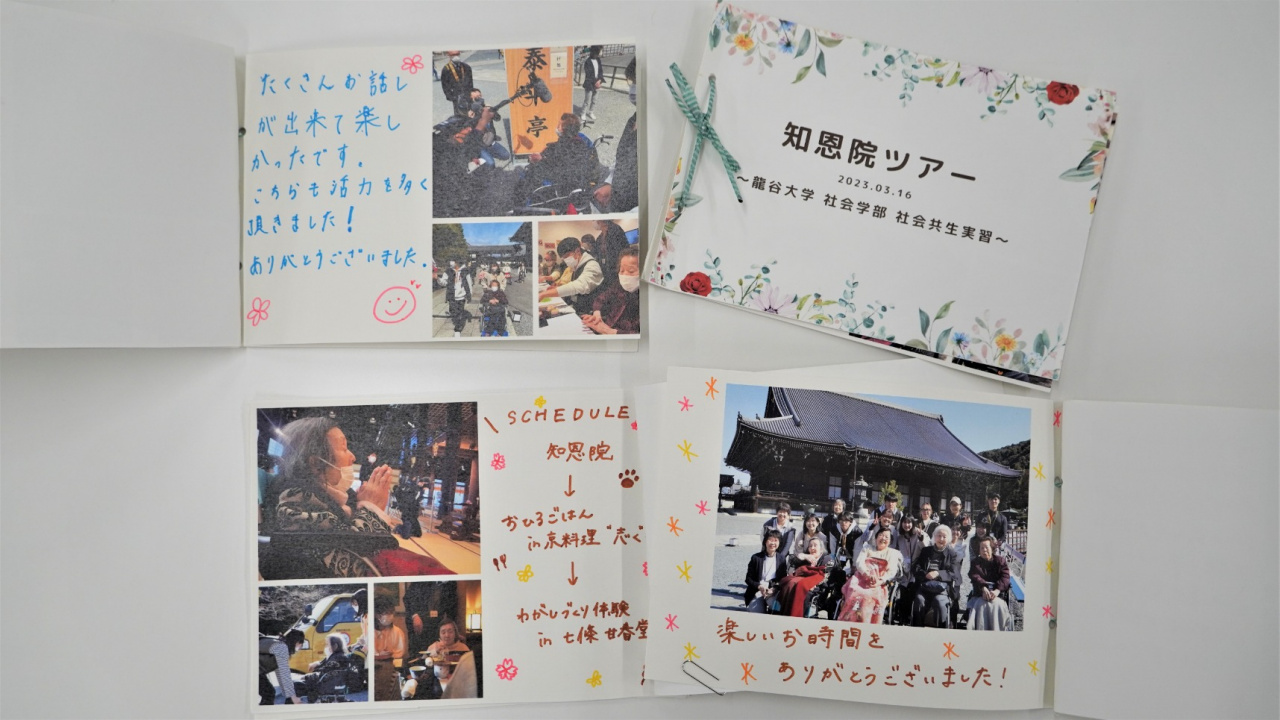 たくさんお話し
が出来て楽し
かったです。
こちらも活力を多く
頂きました!
ありがとうございました。
知恩院ツアー
2023.03.16
～龍谷大学 社会学部 社会共生実習～
SCHEDULE
知恩院
↓
おひるごはん
in 京料理
↓
わがしづくり体験
in 七條甘春堂
楽しいお時間を
ありがとうございました!